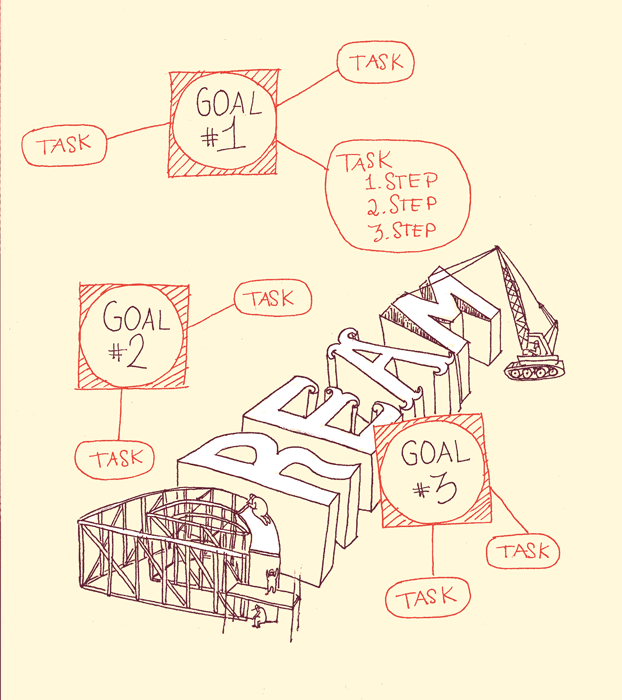 TASK
GOAL
#1
TASK
TASK
1. STEP
2. STEP
3. STEP
GOAL
#2
TASK
TASK
DREAM
GOAL
#3
TASK
TASK